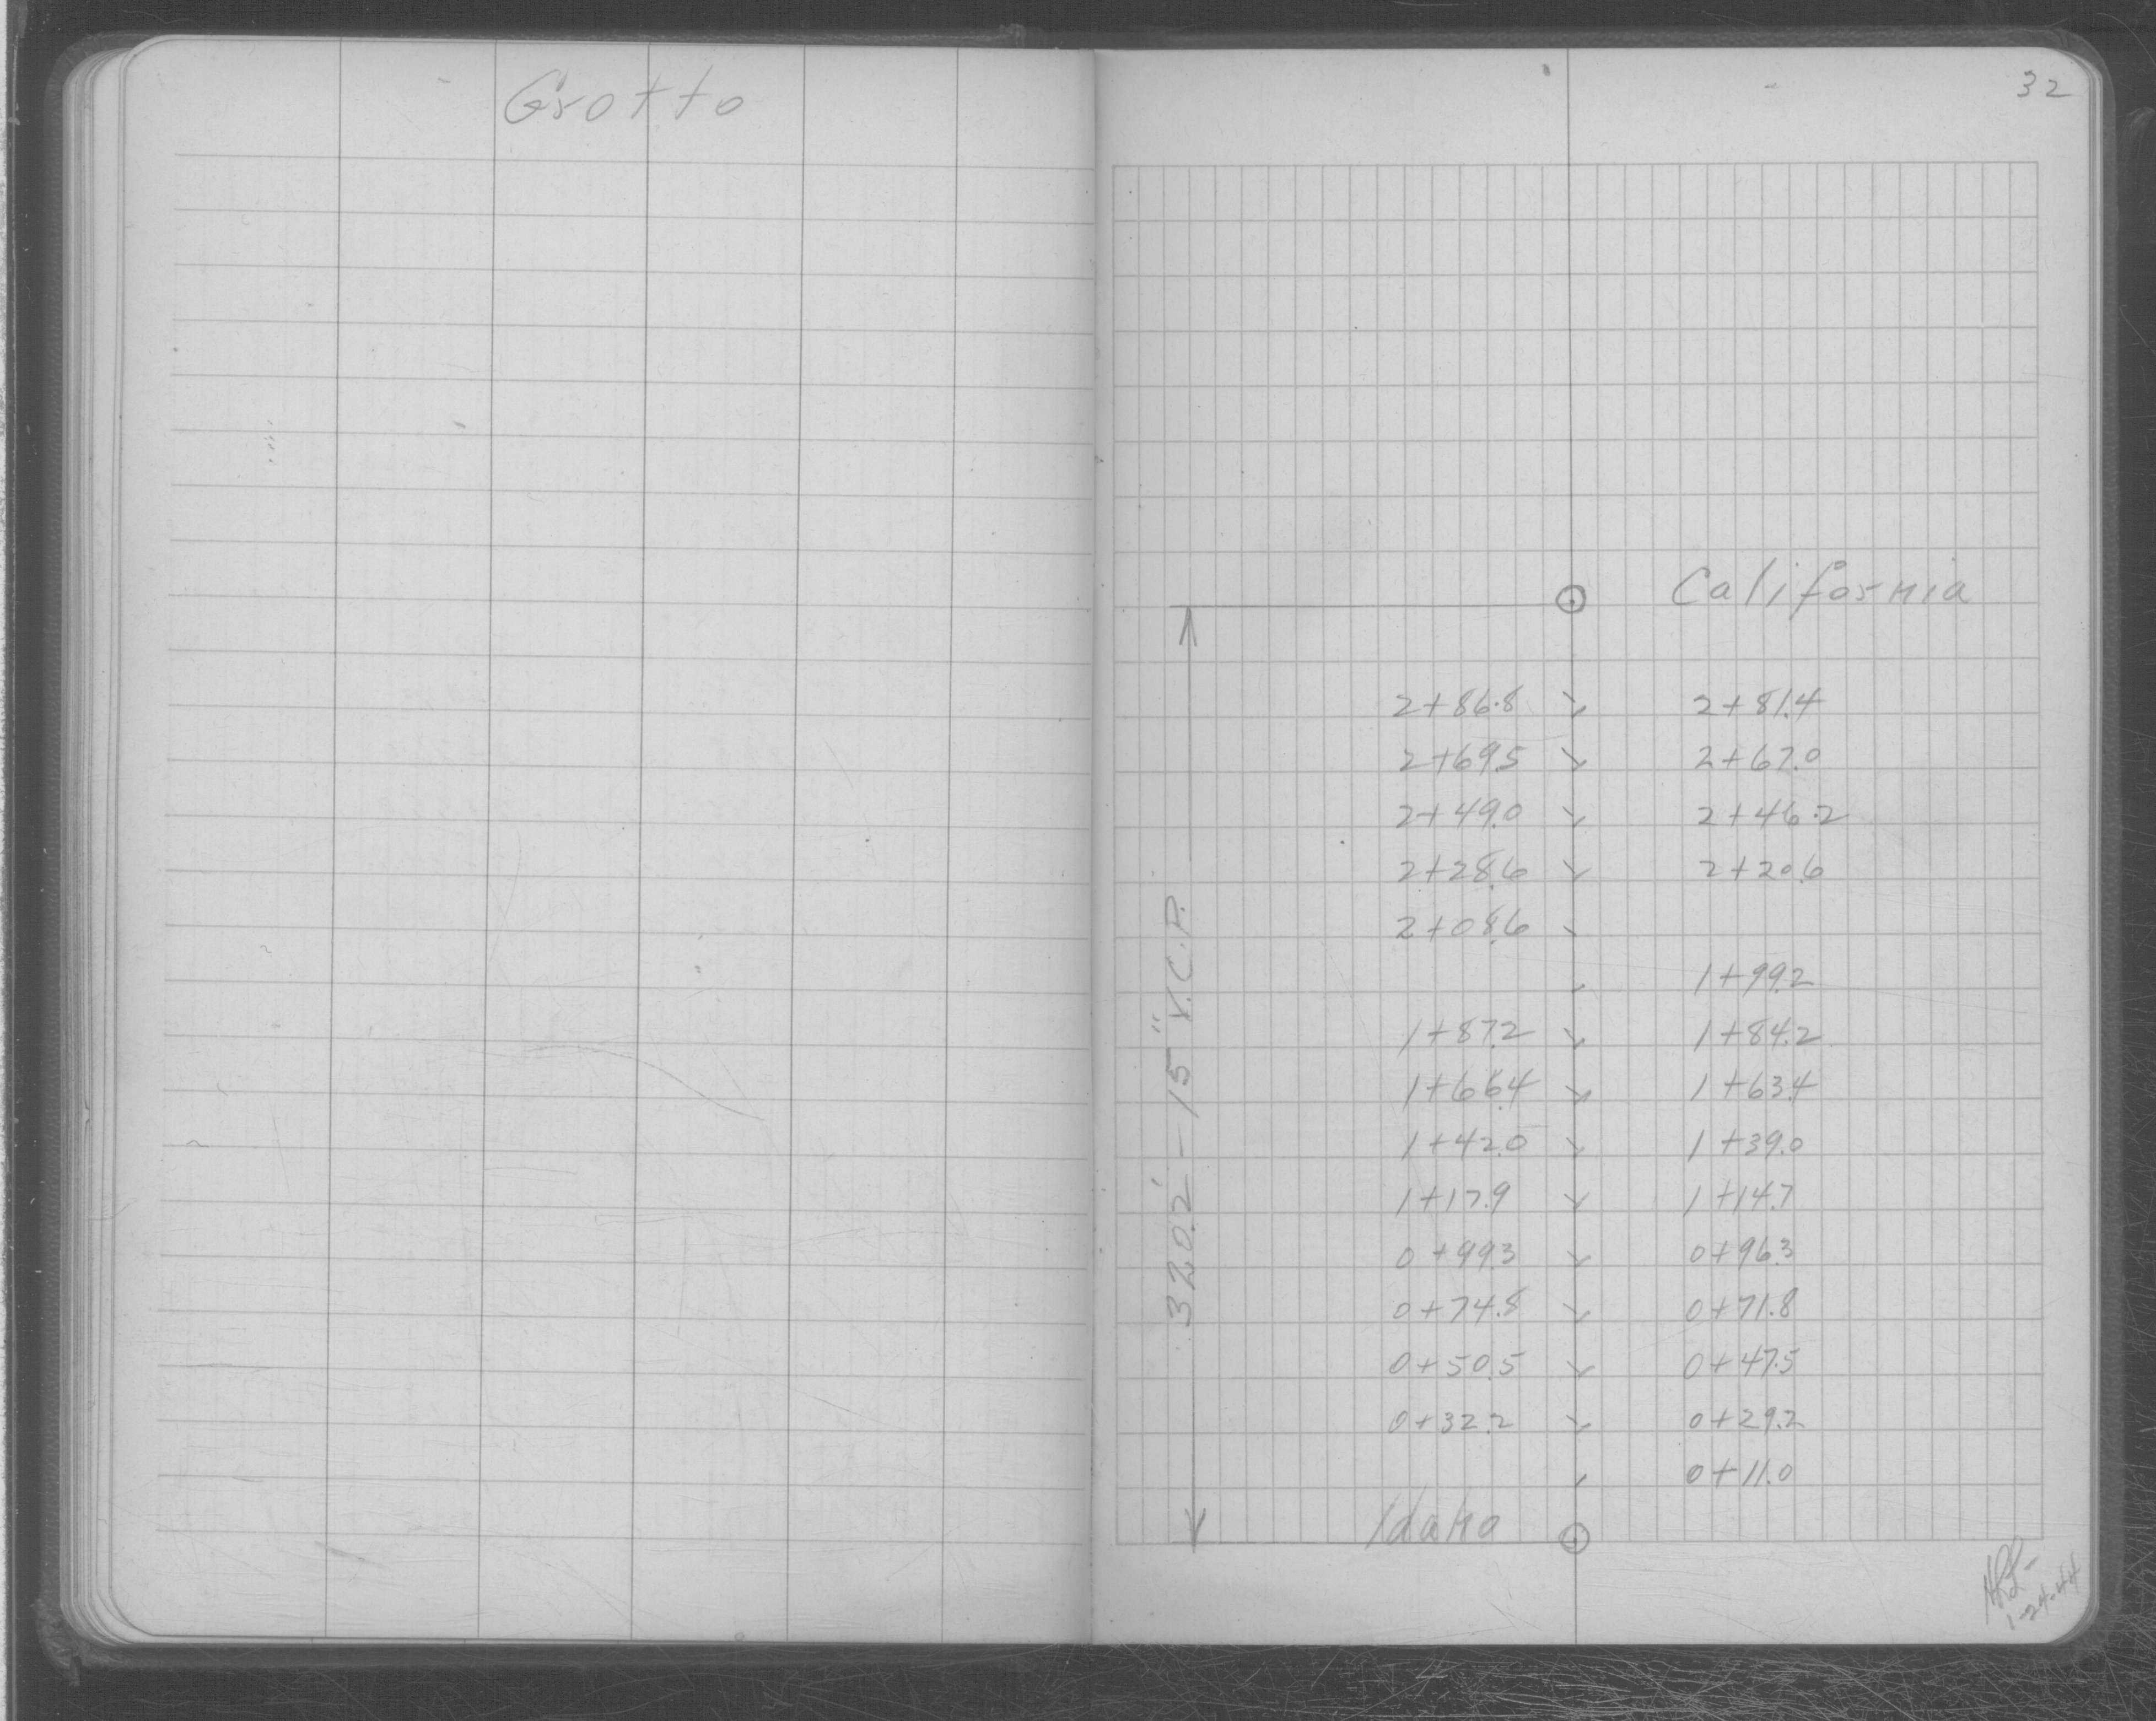 Grotto
32
California
2+86.8 2+81.4
2+69.5 2+67.0
2+49.0 2+46.2
2+28.6 2+20.6
2+08.6
1+99.2
1+87.2 1+84.2
1+66.4 1+63.4
1+42.0 1+39.0
1+17.9 1+14.7
0+99.3 0+96.3
0+74.8 0+71.8
0+50.5 0+47.5
0+32.2 0+29.2
0+11.0
Idaho
320.2' - 15" V.C.P.
1-24-44